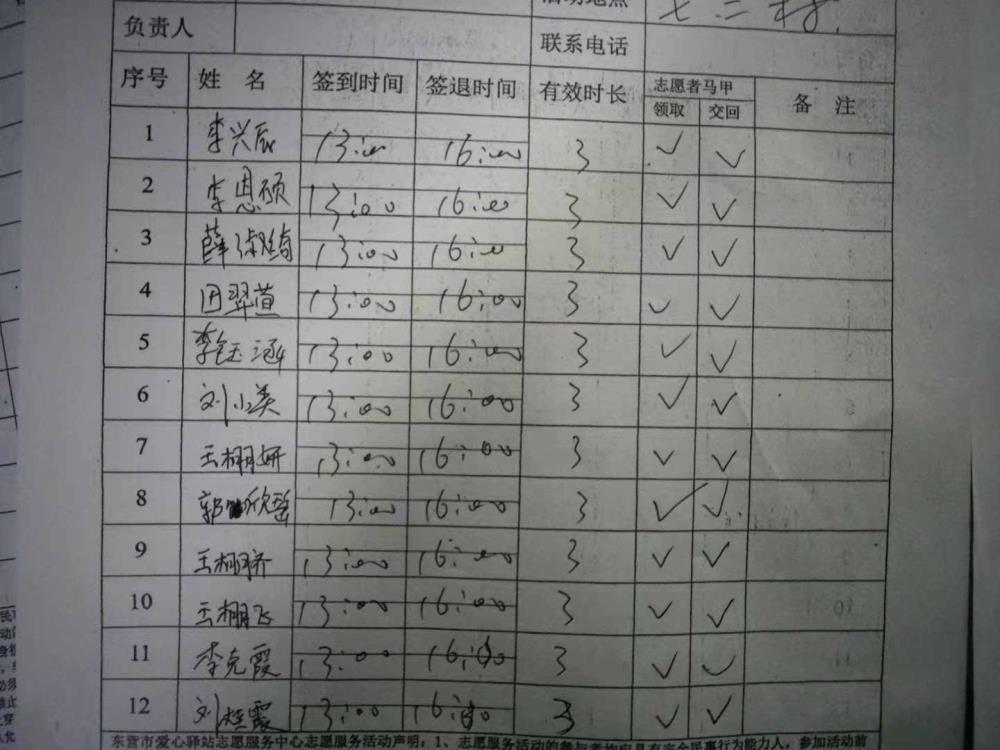 活动地点 七二村.
负责人 联系电话
序号 姓 名 签到时间 签退时间 有效时长 志愿者马甲 备 注
领取 交回
1 李兴辰 13:00 16:00 3 ✓ ✓
2 李恩硕 13:00 16:00 3 ✓ ✓
3 薛淑绮 13:00 16:00 3 ✓ ✓
4 田翠萱 13:00 16:00 3 ✓ ✓
5 李钰涵 13:00 16:00 3 ✓ ✓
6 刘小美 13:00 16:00 3 ✓ ✓
7 王栩妍 13:00 16:00 3 ✓ ✓
8 郭欣瑶 13:00 16:00 3 ✓ ✓
9 王栩乔 13:00 16:00 3 ✓ ✓
10 王栩飞 13:00 16:00 3 ✓ ✓
11 李克霞 13:00 16:00 3 ✓ ✓
12 刘桂霞 13:00 16:00 3 ✓ ✓
东营市爱心驿站志愿服务中心志愿服务活动声明：1、志愿服务活动的参与者均应具有完全民事行为能力人，参加活动前